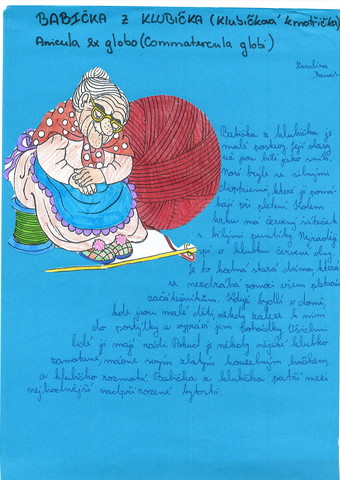 BABIČKA Z KLUBÍČKA (Klubíčková kmotřička)
Anicula ex globo (Commatercula globi)
Karolína
Babička z klubíčka je
malé postavy. Její vlasy
už jsou bílé jako sníh.
Nosí brýle se silnými
které jí pomá-
hají při pletení. Kolem
krku má červený šáteček
s bílými puntíky. Nejraději
spí v klubku červené vlny.
Je to hodná stará dáma, která
se nezdráhá pomoci všem pletařským
začátečníkům. Když bydlí v domě,
kde jsou malé děti, někdy zaleze k nim
do postýlky a vypráví jim pohádky. Všichni
lidé ji mají rádi. Pokud je někdy nějaké klubko
zamotané, mávne svým zlatým kouzelným háčkem,
a klubíčko rozmotá. Babička z klubíčka patří mezi
nejhodnější nadpřirozené bytosti.